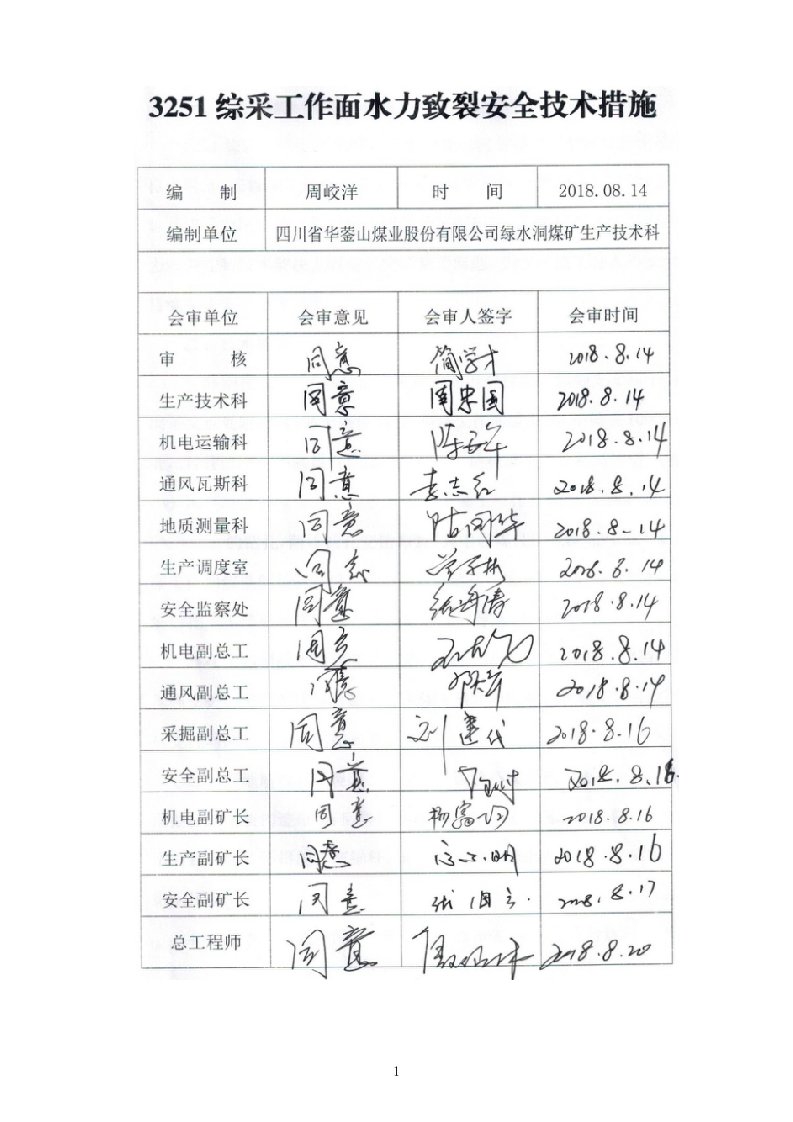 3251 综采工作面水力致裂安全技术措施
编 制 周峧洋 时 间 2018.08.14
编制单位 四川省华蓥山煤业股份有限公司绿水洞煤矿生产技术科
会审单位 会审意见 会审人签字 会审时间
审 核 同意 简学才 2018.8.14
生产技术科 同意 周忠国 2018.8.14
机电运输科 同意 2018.8.14
通风瓦斯科 同意 袁志红 2018.8.14
地质测量科 同意 2018.8-14
生产调度室 同意 2018.8.14
安全监察处 同意 2018.8.14
机电副总工 同意 2018.8.14
通风副总工 同意 2018.8.14
采掘副总工 同意 刘建代 2018.8.16
安全副总工 同意 2018.8.16
机电副矿长 同意 2018.8.16
生产副矿长 同意 2018.8.16
安全副矿长 同意 2018.8.17
总工程师 同意 2018.8.20
1